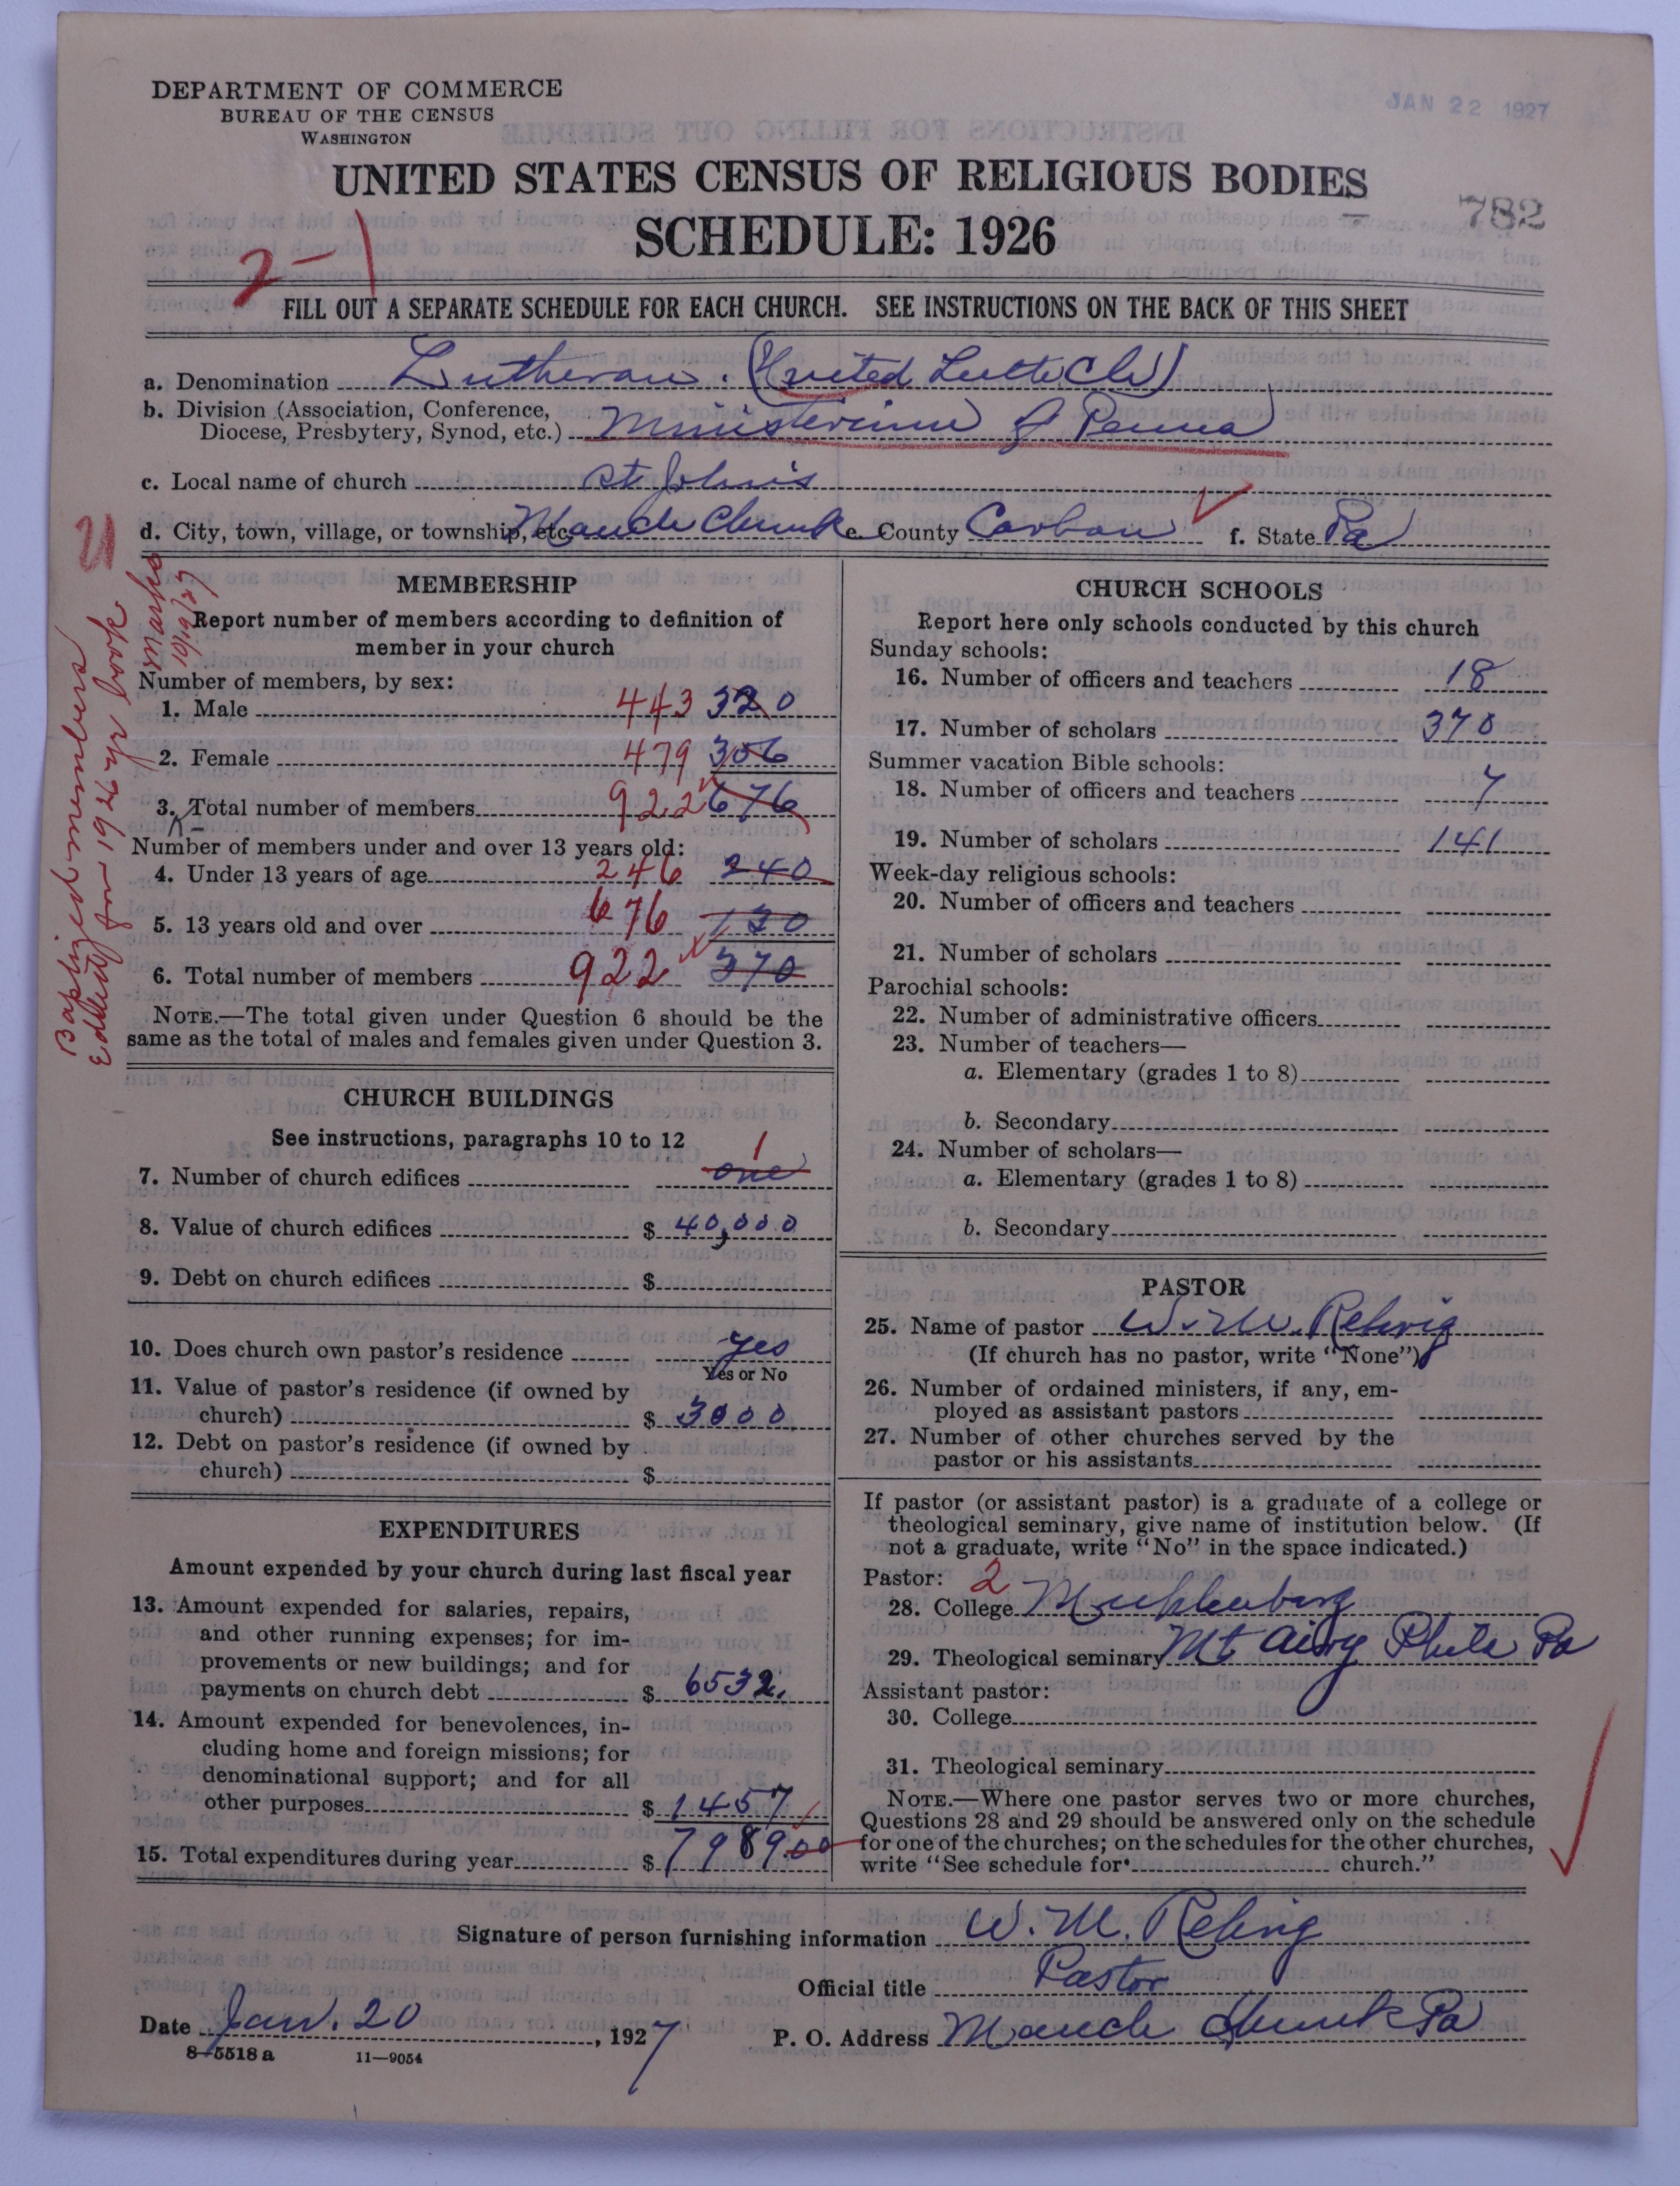 DEPARTMENT OF COMMERCE
BUREAU OF THE CENSUS
WASHINGTON
JAN 22 1927
UNITED STATES CENSUS OF RELIGIOUS BODIES
SCHEDULE: 1926
782
2-1
FILL OUT A SEPARATE SCHEDULE FOR EACH CHURCH. SEE INSTRUCTIONS ON THE BACK OF THIS SHEET
a. Denomination Lutheran. (United Luth Ch)
b. Division (Association, Conference,
Diocese, Presbytery, Synod, etc.) Ministerium of Penna
c. Local name of church St John's
d. City, town, village, or township, etc. Mauch Chunk e. County Carbon f. State Pa
Baptized members
for 1926 yr book
10/19/27
MEMBERSHIP
Report number of members according to definition of
member in your church
Number of members, by sex:
1. Male 443 320
2. Female 479 306
3. Total number of members 922 676
Number of members under and over 13 years old:
4. Under 13 years of age 246 240
5. 13 years old and over 676 130
6. Total number of members 922 370
NOTE.—The total given under Question 6 should be the
same as the total of males and females given under Question 3.
CHURCH BUILDINGS
See instructions, paragraphs 10 to 12
7. Number of church edifices one 1
8. Value of church edifices $ 40,000
9. Debt on church edifices $
10. Does church own pastor's residence yes
Yes or No
11. Value of pastor's residence (if owned by
church) $ 3000
12. Debt on pastor's residence (if owned by
church) $
EXPENDITURES
Amount expended by your church during last fiscal year
13. Amount expended for salaries, repairs,
and other running expenses; for im-
provements or new buildings; and for
payments on church debt $ 6532.
14. Amount expended for benevolences, in-
cluding home and foreign missions; for
denominational support; and for all
other purposes $ 1457
15. Total expenditures during year $ 7989.00
CHURCH SCHOOLS
Report here only schools conducted by this church
Sunday schools:
16. Number of officers and teachers 18
17. Number of scholars 370
Summer vacation Bible schools:
18. Number of officers and teachers 7
19. Number of scholars 141
Week-day religious schools:
20. Number of officers and teachers
21. Number of scholars
Parochial schools:
22. Number of administrative officers
23. Number of teachers—
a. Elementary (grades 1 to 8)
b. Secondary
24. Number of scholars—
a. Elementary (grades 1 to 8)
b. Secondary
PASTOR
25. Name of pastor W. M. Rehrig
(If church has no pastor, write "None")
26. Number of ordained ministers, if any, em-
ployed as assistant pastors
27. Number of other churches served by the
pastor or his assistants
If pastor (or assistant pastor) is a graduate of a college or
theological seminary, give name of institution below. (If
not a graduate, write "No" in the space indicated.)
Pastor: 2
28. College Muhlenberg
29. Theological seminary Mt Airy Phila Pa
Assistant pastor:
30. College
31. Theological seminary
NOTE.—Where one pastor serves two or more churches,
Questions 28 and 29 should be answered only on the schedule
for one of the churches; on the schedules for the other churches,
write "See schedule for church."
Signature of person furnishing information W. M. Rehrig
Official title Pastor
Date Jan. 20, 1927 P. O. Address Mauch Chunk Pa
8—5518 a 11—9054